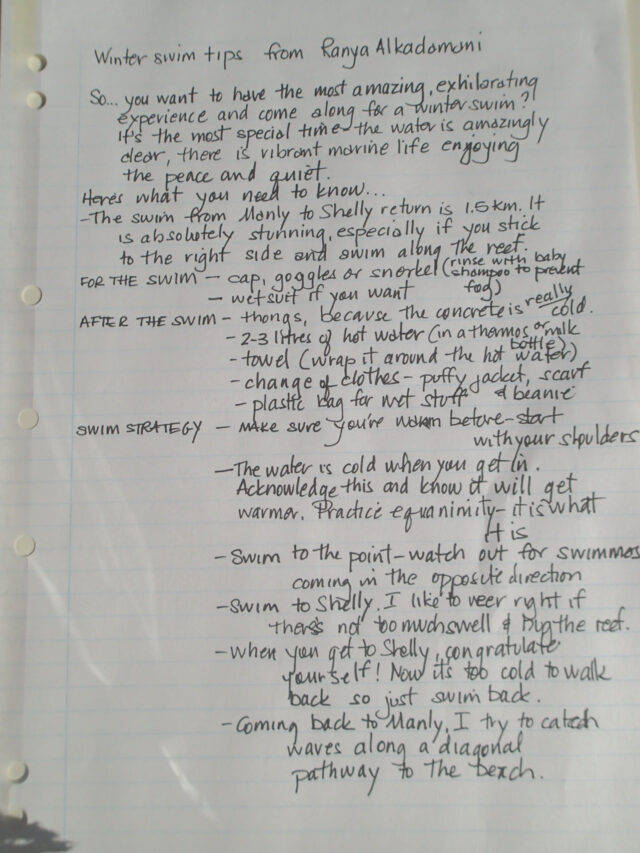 Winter swim tips from Ranya Alkadamani
So... you want to have the most amazing, exhilarating
experience and come along for a winter swim?
It's the most special time - the water is amazingly
clear, there is vibrant marine life enjoying
the peace and quiet.
Here's what you need to know...
- The swim from Manly to Shelly return is 1.5 km. It
is absolutely stunning, especially if you stick
to the right side and swim along the reef.
FOR THE SWIM - cap, goggles or snorkel (rinse with baby
shampoo to prevent
fog)
- wetsuit if you want
AFTER THE SWIM - thongs, because the concrete is really
cold.
- 2-3 litres of hot water (in a thermos or milk
bottle)
- towel (wrap it around the hot water)
- change of clothes - puffy jacket, scarf
& beanie
- plastic bag for wet stuff
SWIM STRATEGY - Make sure you're warm before - start
with your shoulders
- The water is cold when you get in.
Acknowledge this and know it will get
warmer. Practice equanimity - it is what
it is
- Swim to the point - watch out for swimmers
coming in the opposite direction
- Swim to Shelly. I like to veer right if
there's not too much swell & hug the reef.
- When you get to Shelly, congratulate
yourself! Now it's too cold to walk
back so just swim back.
- Coming back to Manly, I try to catch
waves along a diagonal
pathway to the beach.